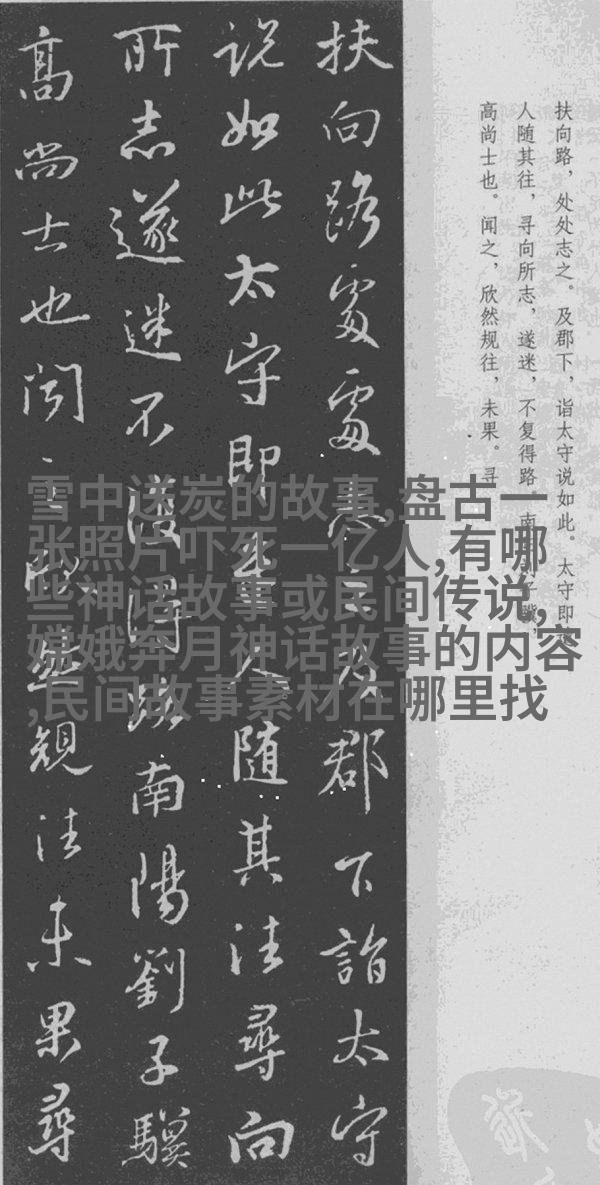 扶向路，处处志之。及郡下，诣太守说如此。太守即
人随其往，寻向所志，遂迷，不复得路 南 子骥，
高尚士也。闻之，欣然规往，未果。寻
扶向路處處志之及郡下詣太守
説如此太守即遣人随其往尋向
所志遂迷不復得路南陽劉子驥
高尚士也闻之欣然規往未果尋
雪中送炭的故事,盘古一
张照片吓死一亿人,有哪
些神话故事或民间传说,
嫦娥奔月神话故事的内容
,民间故事素材在哪里找